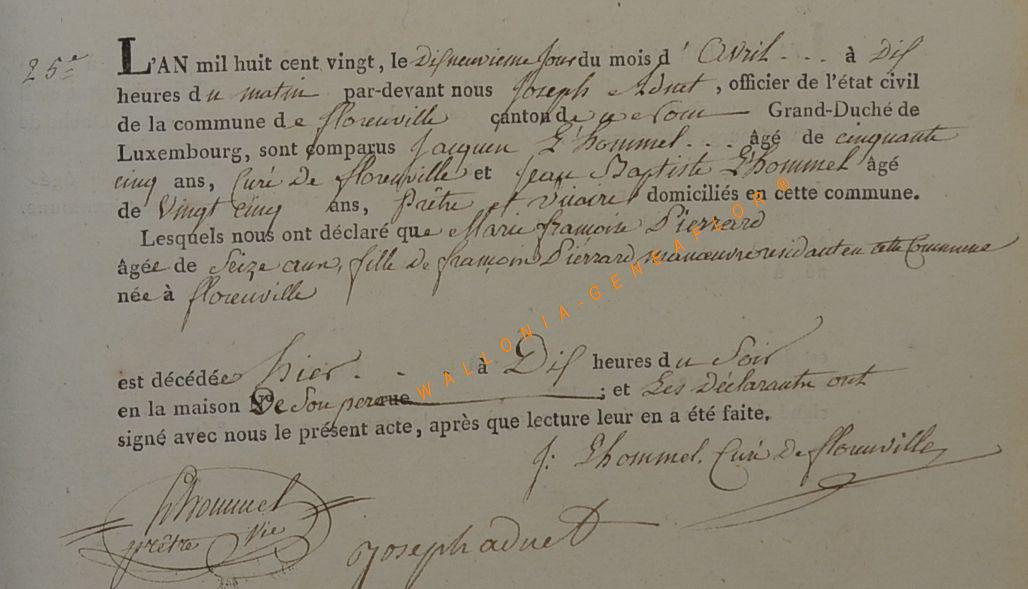 25e
L'AN mil huit cent vingt, le Disneuvieme Jour du mois d' Avril . . . à Dis
heures du matin par-devant nous Joseph Adnet, officier de l'état civil
de la commune de florenville canton de Grand-Duché de
Luxembourg, sont comparus Jacques L'hommel . . . âgé de cinquante
cinq ans, Curé De florenville et Jean Baptiste L'hommel âgé
de Vingt cinq ans, Prêtre et vicaire domiciliés en cette commune.
Lesquels nous ont déclaré que Marie françoise Pierrard
âgée de Seize ans, fille de françois Pierrard manœuvre residant en cette Commune
née à florenville
est décédée hier . . . à Dis heures du Soir
en la maison De Son pere rue ; et Les Déclarants ont
signé avec nous le présent acte, après que lecture leur en a été faite.
J: Lhommel. Curé De florenville
Lhommel
prêtre Vic
Joseph adnet
WALLONIA-GENEAFLOR ®